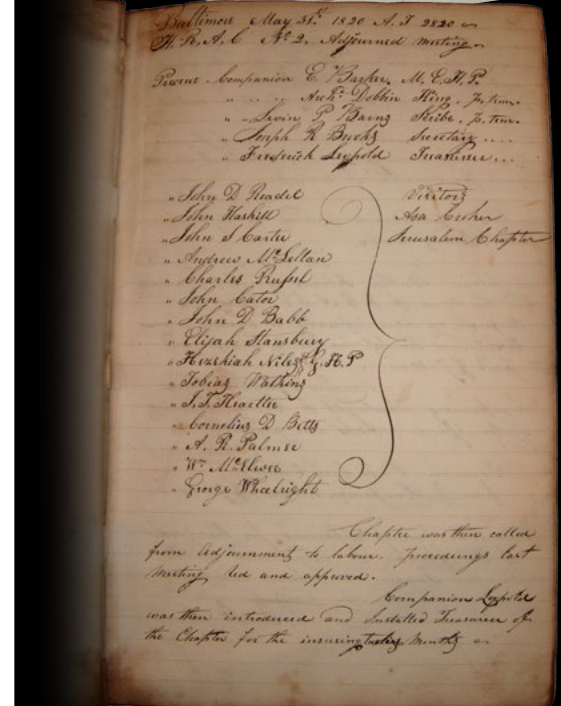 Baltimore May 31st 1820 A.I 2820
H. R. A. C No 2. Adjourned meeting
Present Companion E Barker. M. E. H. P.
" " " Archd Dobbin King. p. tem.
" " Levin P Barnz Scribe. p. tem.
" " Joseph K Burks Secretary....
" " Frederick Leypold Treasurer...
" John D Readel Visitors
" John Haskill Asa
" John S Carter Jerusalem Chapter
" Andrew McLellan
" Charles Russel
" John Cator
" John D Babb
" Elijah Stansbury
" Hezekiah Niles G. H. P
" Tobias Watkins
" Cornelius D Betts
" A. R. Palmer
" Wm McElwee
" George Wheelright
Chapter was then called
from Adjournment to labour. proceedings last
meeting red and approved.
Companion Leypold
was then introduced and Installed Treasurer of
the Chapter for the insuing twelve months